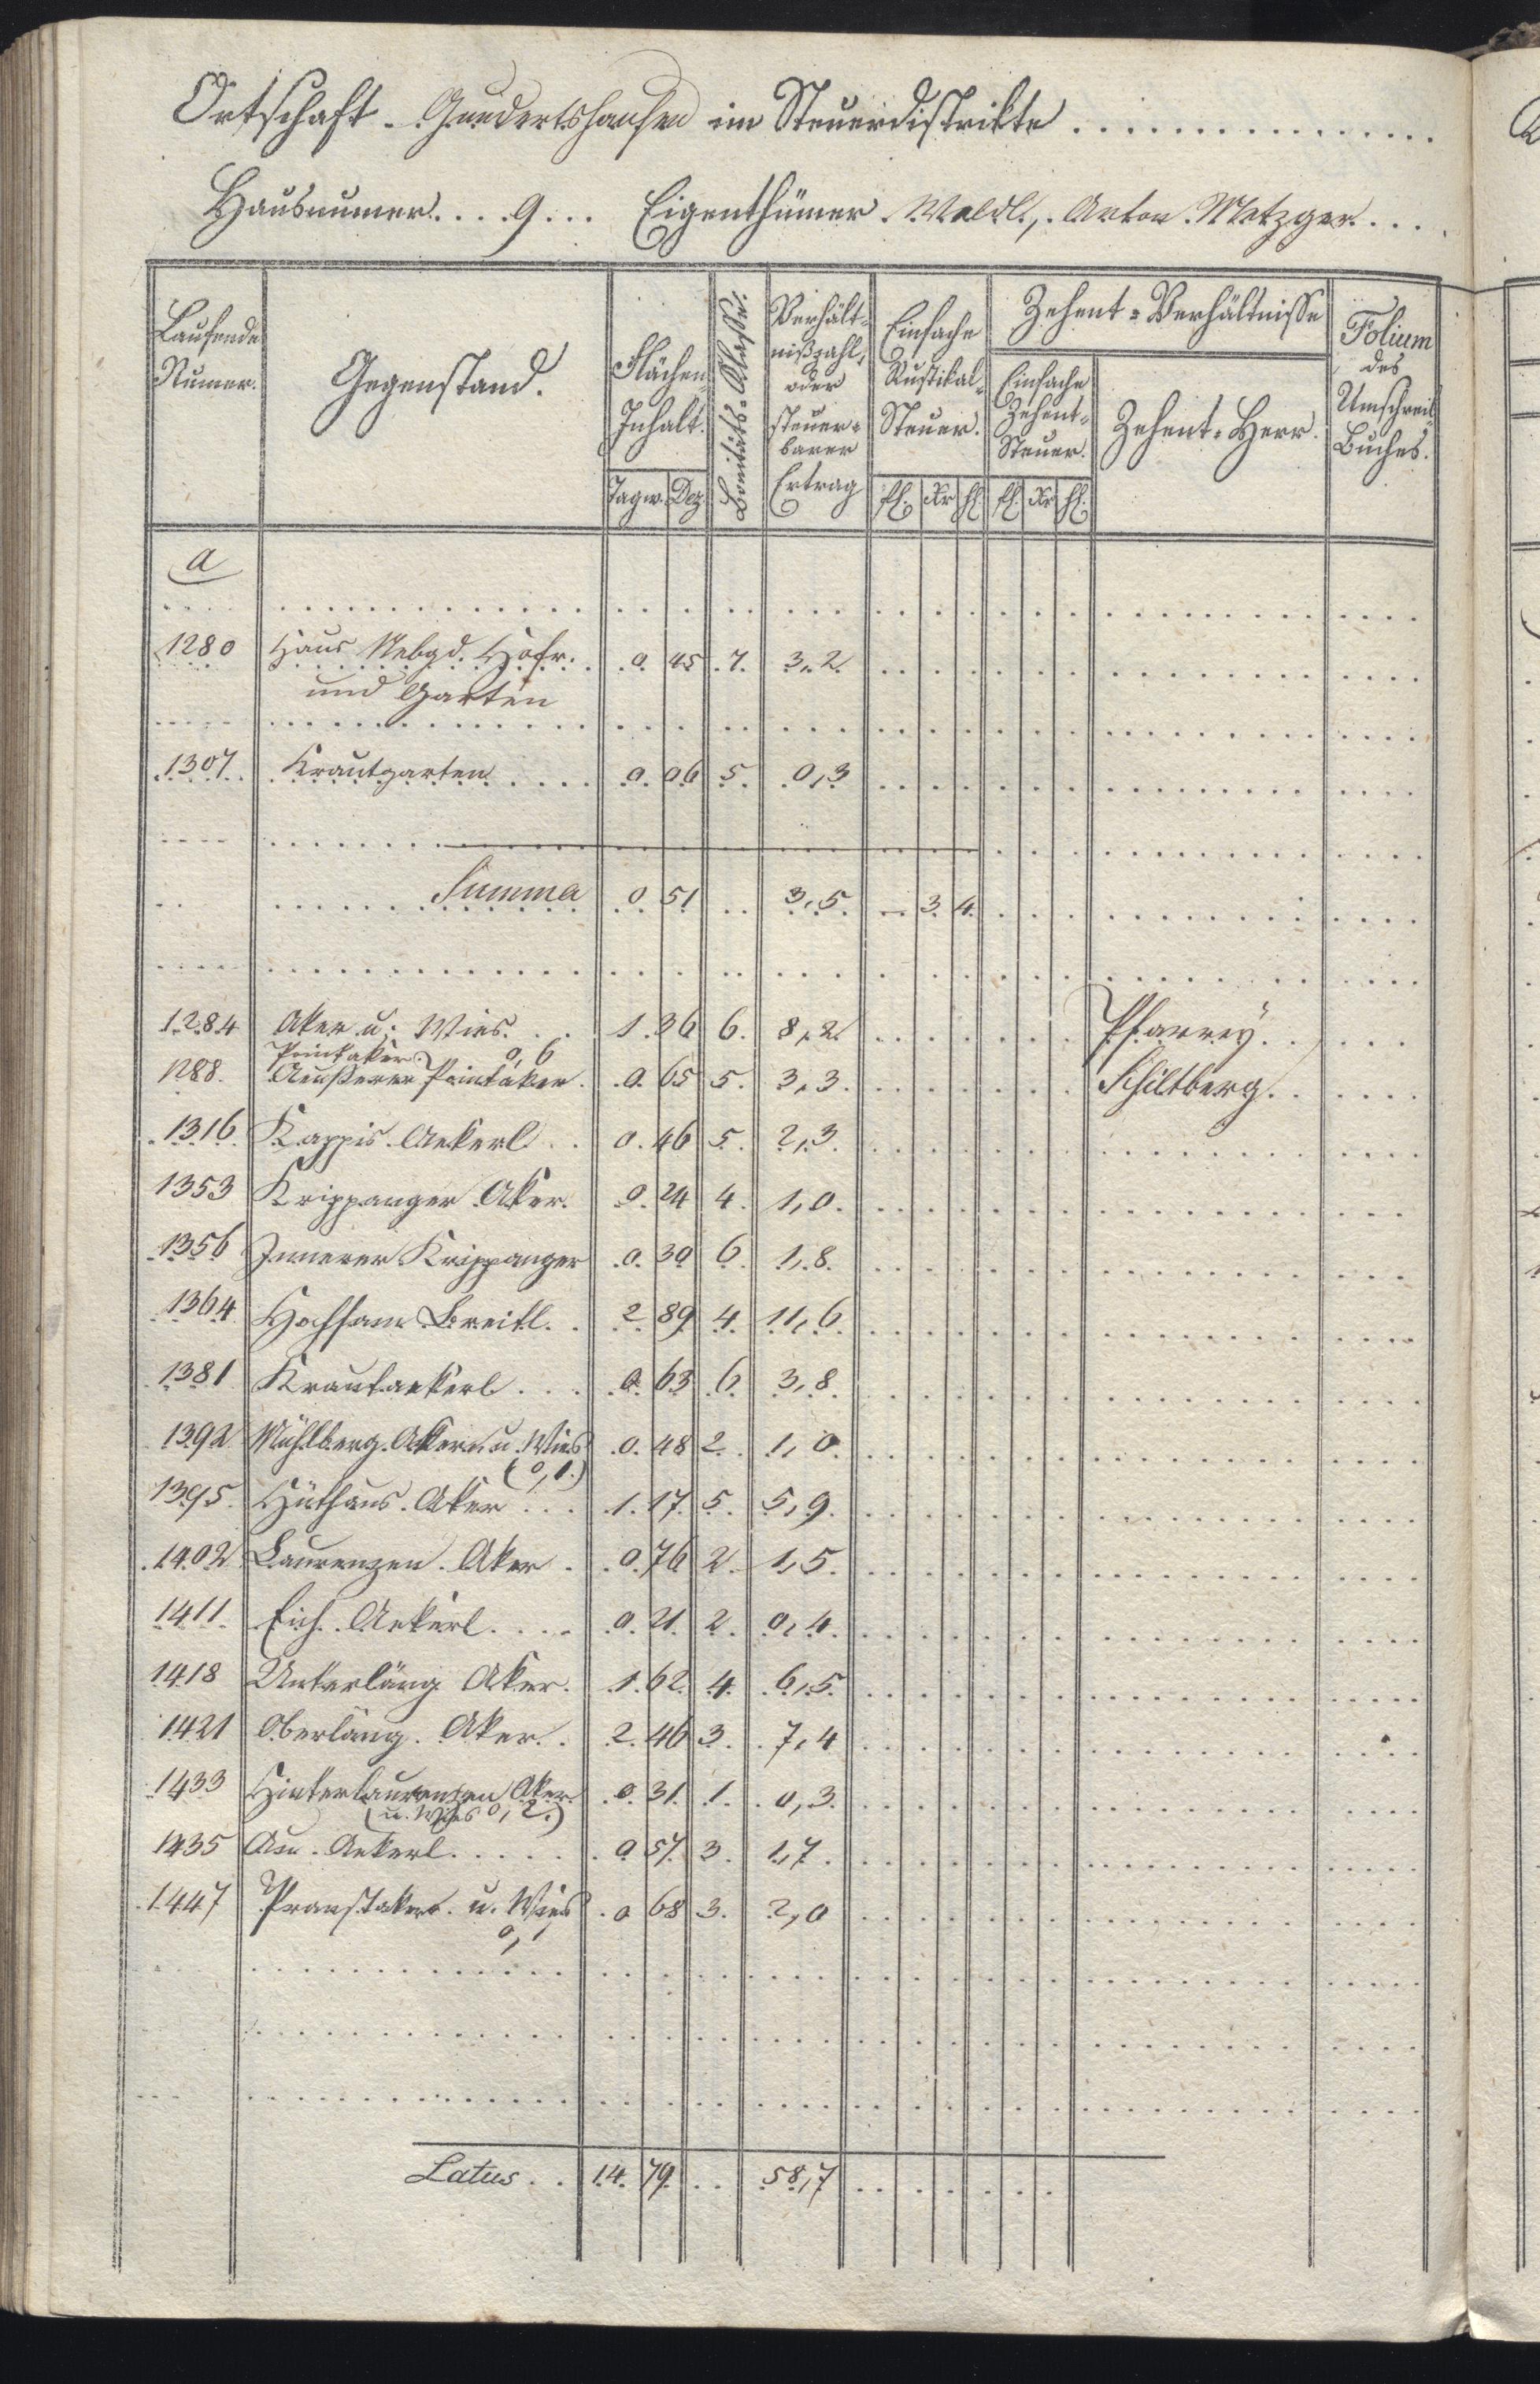 Ortschaft Gundertshausen im Steuerdistrikte
Hausnumer 9 Eigenthümer Waldl, Anton Metzger
Laufende Numer. Gegenstand. Flächen-Inhalt. Bonitäts-Klaße. Verhält-nißzahl, oder steuer-barer Ertrag Einfache Rustikal-Steuer. Zehent-Verhältnisse Folium des Umschreib-Buches.
Einfache Zehent-Steuer. Zehent-Herr.
Tagw. Dez. fl. Xr hl. fl. Xr hl.
a
1280 Haus Nebgd. Hofr. 0 45 7. 3,2
und Garten
1307 Krautgarten 0 06 5. 0,3
Summa 0 51 3,5 3 4
1284 Aker u. Wies. 1 36 6. 8,2 Pfarrey
Pointaker 0,6
1288 Aeußerer Pointaker 0 65 5. 3,3 Schiltberg
1316 Kappis Aekerl 0 46 5. 2,3
1353 Krippanger Aker 0 24 4. 1,0
1356 Innerer Krippanger 0 30 6 1,8
1364 Breitl. 2 89 4 11,6
1381 Krautaekerl 0 63 6 3,8
1392 Mühlberg Aker u. Wies 0 48 2 1,0
(0,1.)
1395 Hüthaus Aker 1 17 5. 5,9
1402 Laurenzen Aker 0 76 2 1,5
1411 Eich Aekerl 0 21 2. 0,4
1418 Unterläng Aker 1 62 4. 6,5
1421 Oberläng Aker 2 46 3. 7,4
1433 Hinterlaurenzen Aker 0 31 1. 0,3
(u. Wies 0,2.)
1435 Aekerl 0 57 3. 1,7
1447 u. Wies 0 68 3. 2,0
0,1
Latus 14 79 58,7